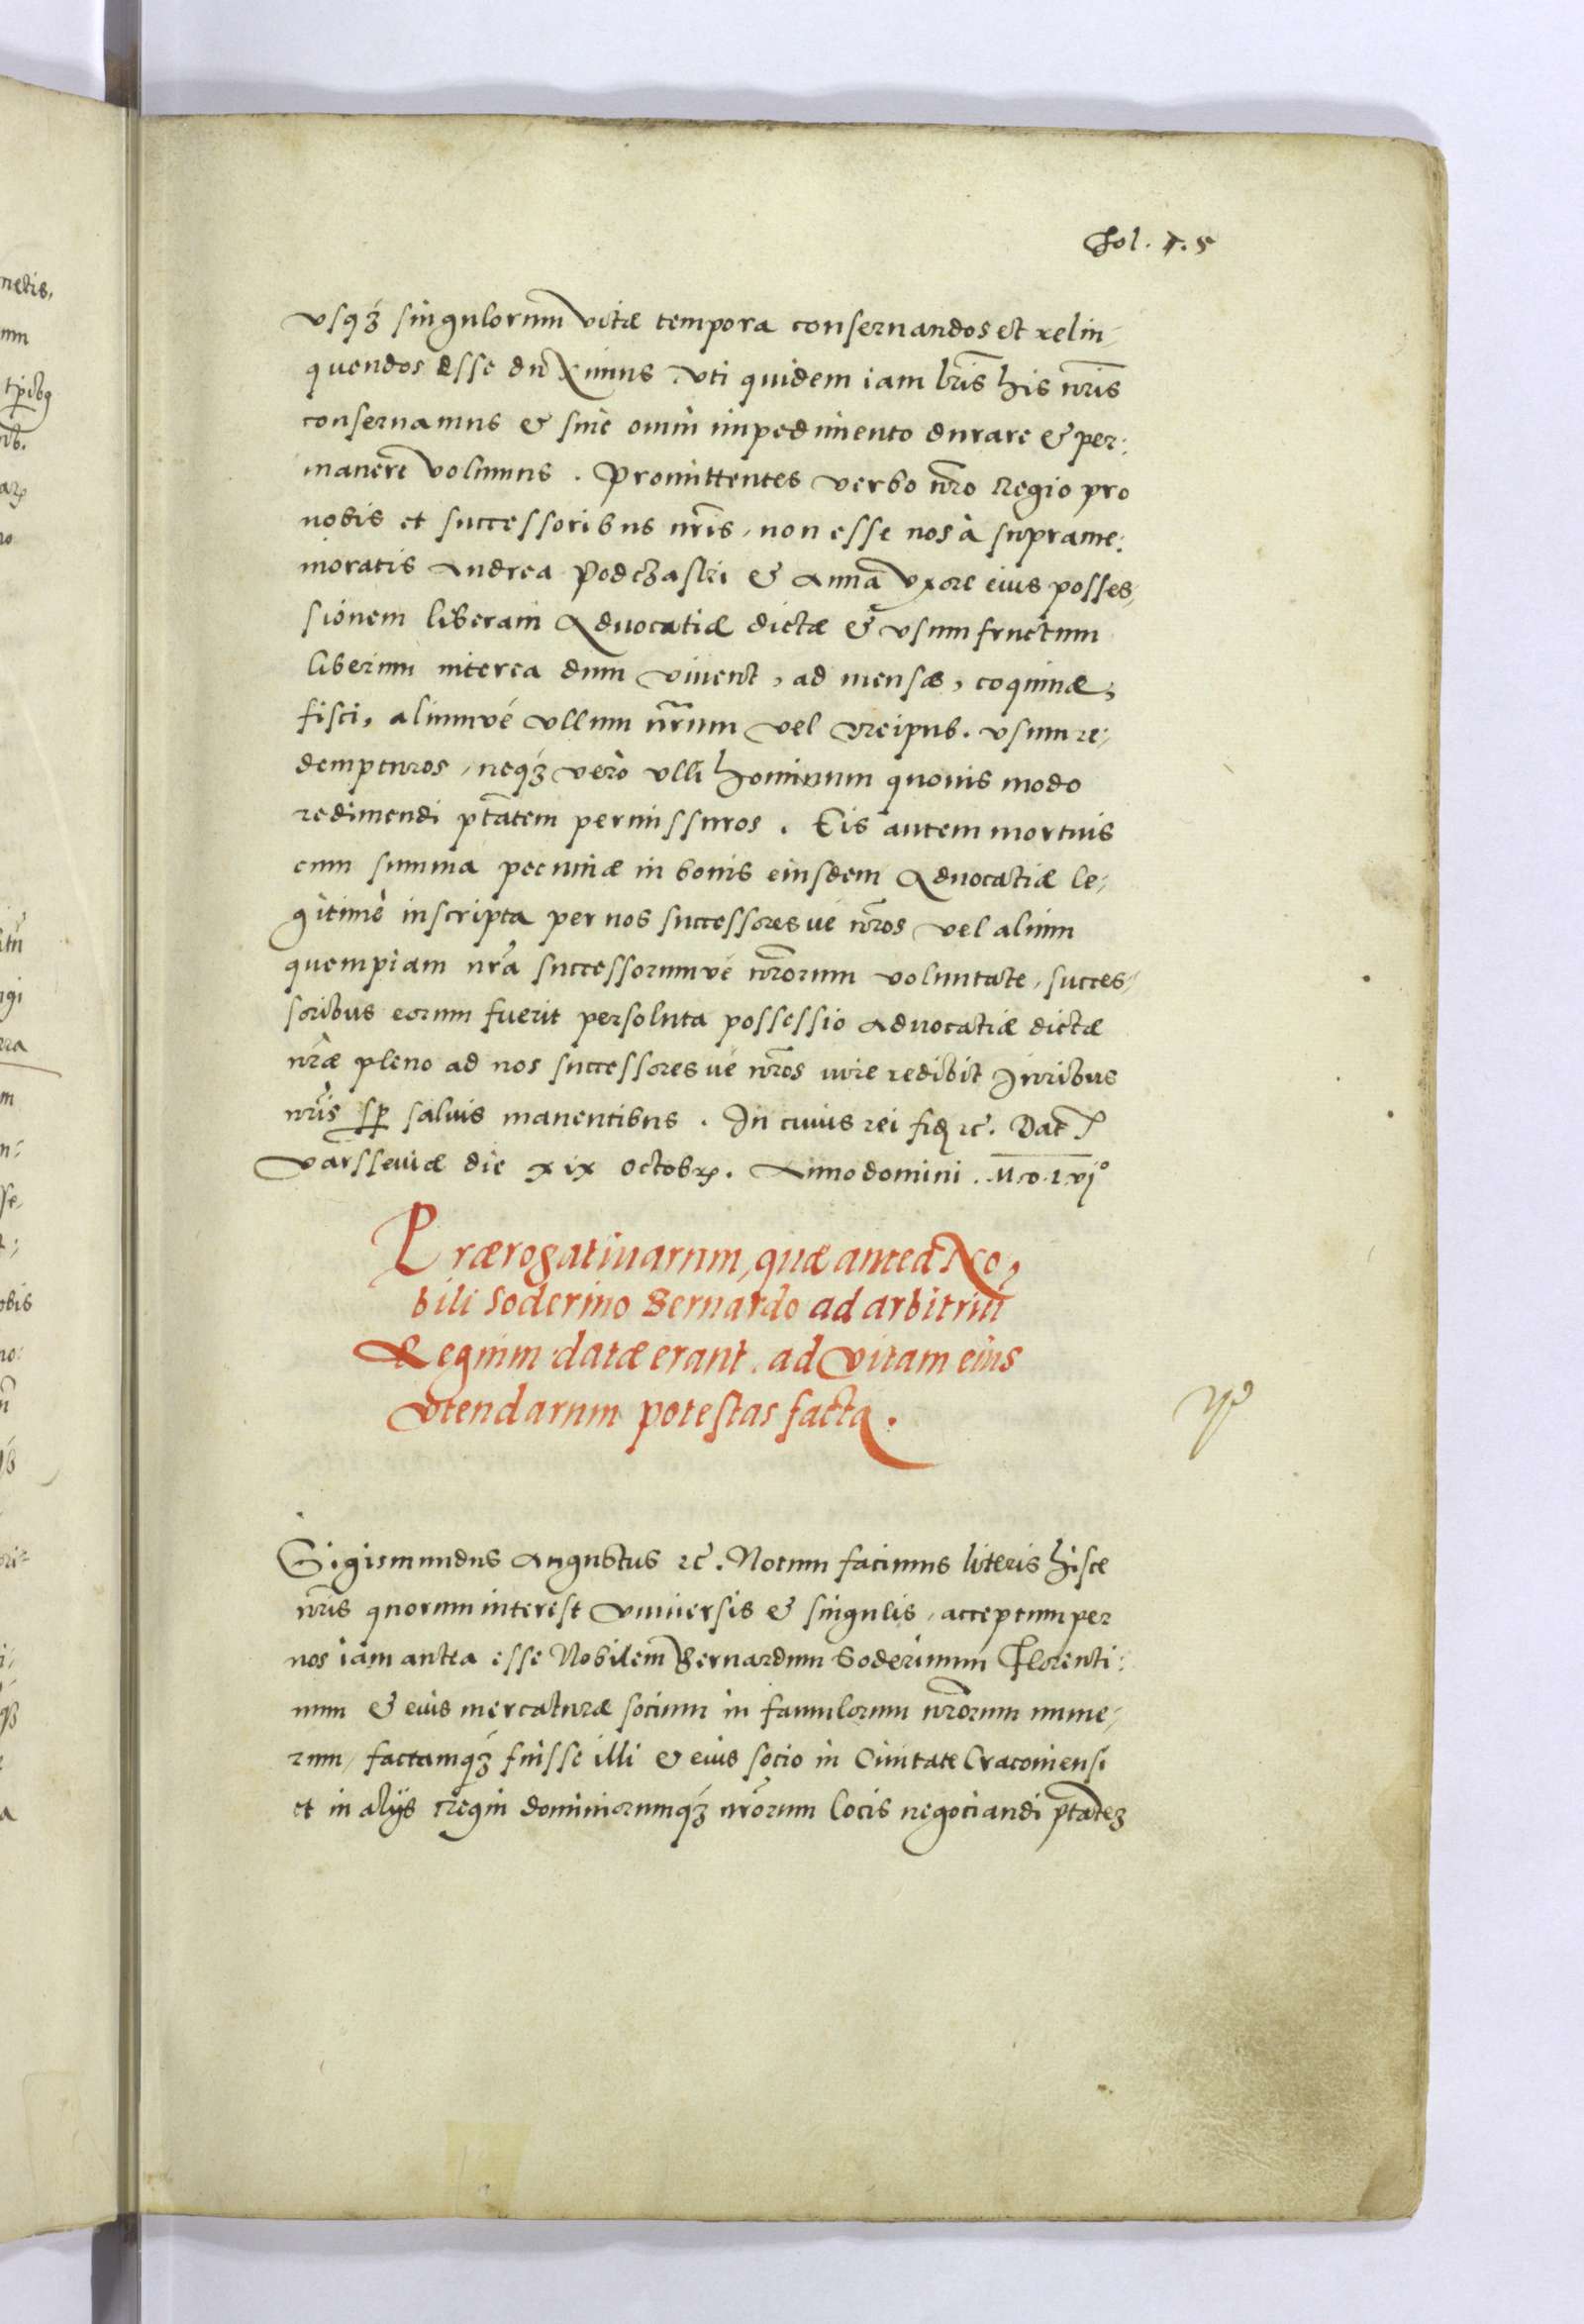 Fol. 1.5
vsq₃ singulorum vitæ tempora conseruandos et relin-
quendos esse duximus. vti quidem iam lr̃is his nr̃is
conseruamus & sine omni impedimento durare & per:
manere volumus. Promittentes verbo nr̃o Regio pro
nobis et successoribus nr̃is, non esse nos à suprame:
moratis Andrea Podczaski & Anna vxore eius posses-
sionem liberam Aduocatiæ dictæ & vsumfructum
liberum interea dum viuent, ad mensæ, coquinæ,
fisci, aliumvé vllum nr̃um vel reipub. vsum re-
dempturos, neq₃ vero vlli hominum quouis modo
redimendi ptãtem permissuros. Eis autem mortuis
cum summa pecuniæ in bonis eiusdem Aduocatiæ le-
gitimè inscripta per nos successores ué nr̃os vel alium
quempiam nr̃a successorumvé nr̃orum voluntate, succes-
soribus eorum fuerit persoluta possessio aduocatiæ dictæ
nr̃æ pleno ad nos successores ué nr̃os iure redibit Iuribus
nr̃is sp̃ saluis manentibus. In cuius rei fid̃ rc̃. Dat̃
Varsseuiæ die xix Octobr̃. Anno domini. M.D.L.vj°
Prærogatiuarum, quæ anteà No-
bili Soderino Bernardo ad arbitriũ
Regium datæ erant. ad vitam eius
vtendarum potestas facta.
Sigismundus Augustus rc̃. Notum facimus literis hisce
nr̃is quorum interest vniuersis & singulis, acceptum per
nos iam antea esse Nobilem Bernardum Soderinum Florenti:
num & eius mercaturæ socium in famulorum nr̃orum nume-
rum, factamq₃ fuisse illi & eius socio in Ciuitate Cracouiensi
et in alijs regni dominiorumq₃ nr̃orum locis negociandi ptãtem